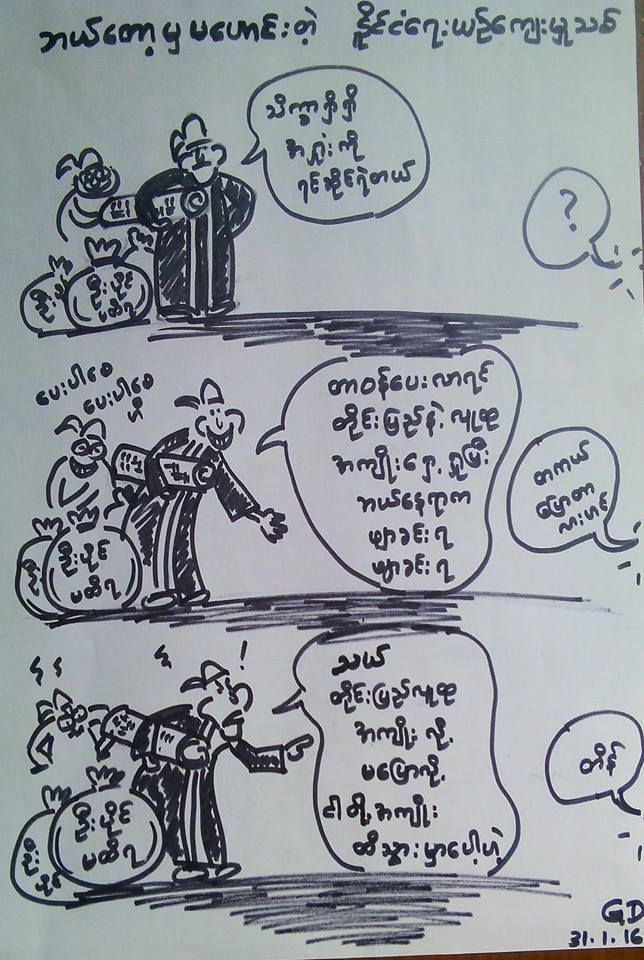 ဘယ်တော့မှ မဟောင်းတဲ့ နိူင်ငံရေးယဉ်ကျေးမှုသစ်
သိက္ခာရှိရှိ
အရှုံးကို
ရင်ဆိုင်ရဲတယ်
?
ဦးပိုင်
မထိရ
ပေးပါစေ
ပေးပါစေ
ဟီ
တာဝန်ပေးလာရင်
တိုင်းပြည်နဲ့ လူထု
အကျိုးရှေ့ရှုပြီး
ဘယ်နေရာက
မျာခင်းရ
မျာခင်းရ
တကယ်
ပြောတာ
လားဟင်
ဦးပိုင်
မထိရ
!
သယ်
တိုင်းပြည်လူထု
အကျိုးလို့
မပြောလို့
ငါတို့အကျိုး
ထိသွားမှာပေါ့ဟဲ့
တိန်
ဦးပိုင်
မထိရ
ဦး
ပိုင်
GD
31.1.16